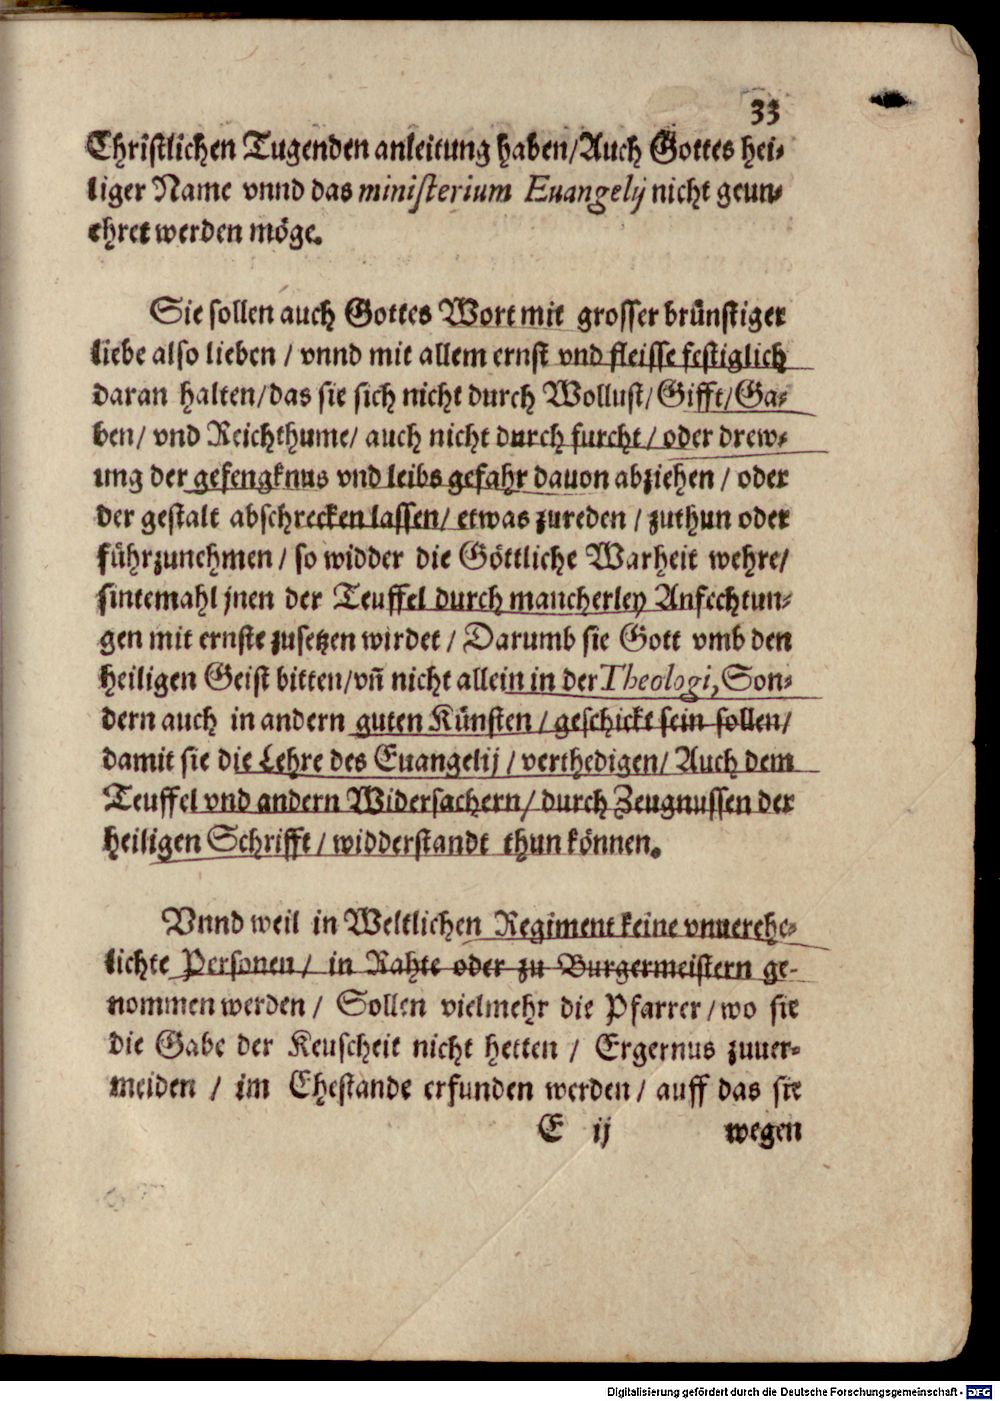 33
Christlichen Tugenden anleitung haben/Auch Gottes hei-
liger Name vnnd das ministerium Euangelij nicht geun-
ehret werden möge.
Sie sollen auch Gottes Wort mit grosser brünstiger
liebe also lieben / vnnd mit allem ernst vnd fleisse festiglich
daran halten/das sie sich nicht durch Wollust/Gifft/Ga-
ben/ vnd Reichthume/ auch nicht durch furcht/ oder drew-
ung der gefengknus vnd leibs gefahr dauon abziehen / oder
der gestalt abschrecken lassen/ etwas zureden / zuthun oder
führzunehmen / so widder die Göttliche Warheit wehre/
sintemahl jnen der Teuffel durch mancherley Anfechtun-
gen mit ernste zusetzen wirdet / Darumb sie Gott vmb den
heiligen Geist bitten/vn̄ nicht allein in der Theologi, Son-
dern auch in andern guten Künsten / geschickt sein sollen/
damit sie die Lehre des Euangelij / verthedigen/ Auch dem
Teuffel vnd andern Widersachern/ durch Zeugnussen der
heiligen Schrifft / widderstandt thun können.
Vnnd weil in Weltlichen Regiment keine vnuerehe-
lichte Personen/ in Rahte oder zu Burgermeistern ge-
nommen werden / Sollen vielmehr die Pfarrer / wo sie
die Gabe der Keuscheit nicht hetten / Ergernus zuuer-
meiden / im Ehestande erfunden werden / auff das sie
E ij wegen
Digitalisierung gefördert durch die Deutsche Forschungsgemeinschaft - DFG